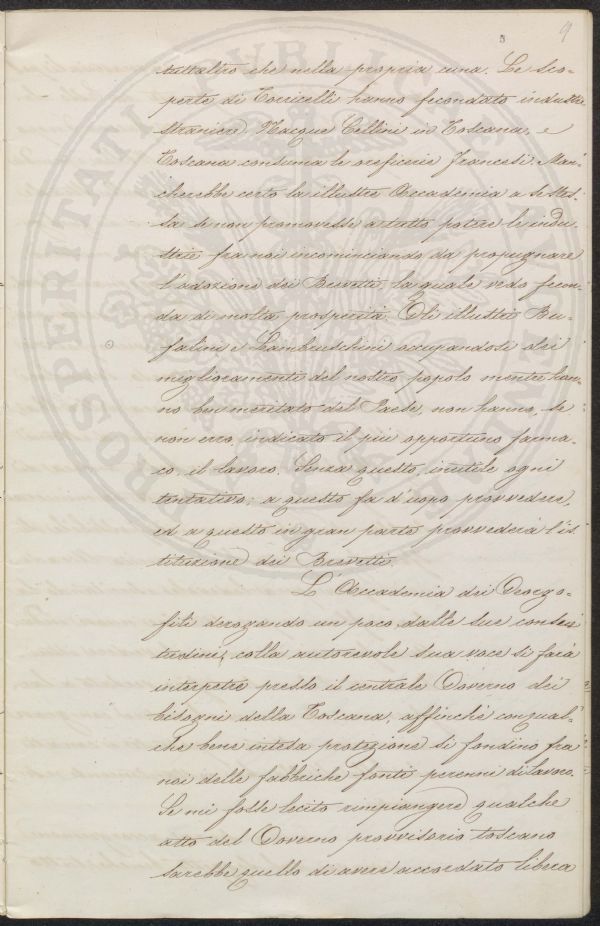 5
9
tutt'altro che nella propria cuna. Le sco-
perte di Torricelli hanno fecondato industrie
straniere. Nacque Cellini in Toscana, e
Toscana consuma le oreficerie francesi. Man-
cherebbe certo la illustre Accademia a se stes-
sa se non promovesse a tutto potere le indu-
strie fra noi incominciando da propugnare
l'adozione dei Brevetti, la quale vedo fecon-
da di molta prosperità. Gli illustri Bu-
falini e Lambruschini occupandosi dei
miglioramenti del nostro popolo mentre han-
no ben meritato del Paese, non hanno, se
non erro, indicato il più opportuno farma-
co, il lavoro. Senza questo, inutile ogni
tentativo; a questo fa d'uopo provvedere,
ed a questo in gran parte provvederà l'is-
tituzione dei Brevetti.
L'Accademia dei Georgo-
fili derogando un poco dalle sue consue
tudini, colla autorevole sua voce si facia
interpetre presso il centrale Governo dei
bisogni della Toscana, affinché con qual-
che bene intesa protezione si fondino fra
noi delle fabbriche fonti perenni di lavoro.
Se mi fosse lecito rimpiangere qualche
atto del Governo provvisorio toscano
sarebbe quello di avere accordato libera
PROSPERITATI PUBLICAE